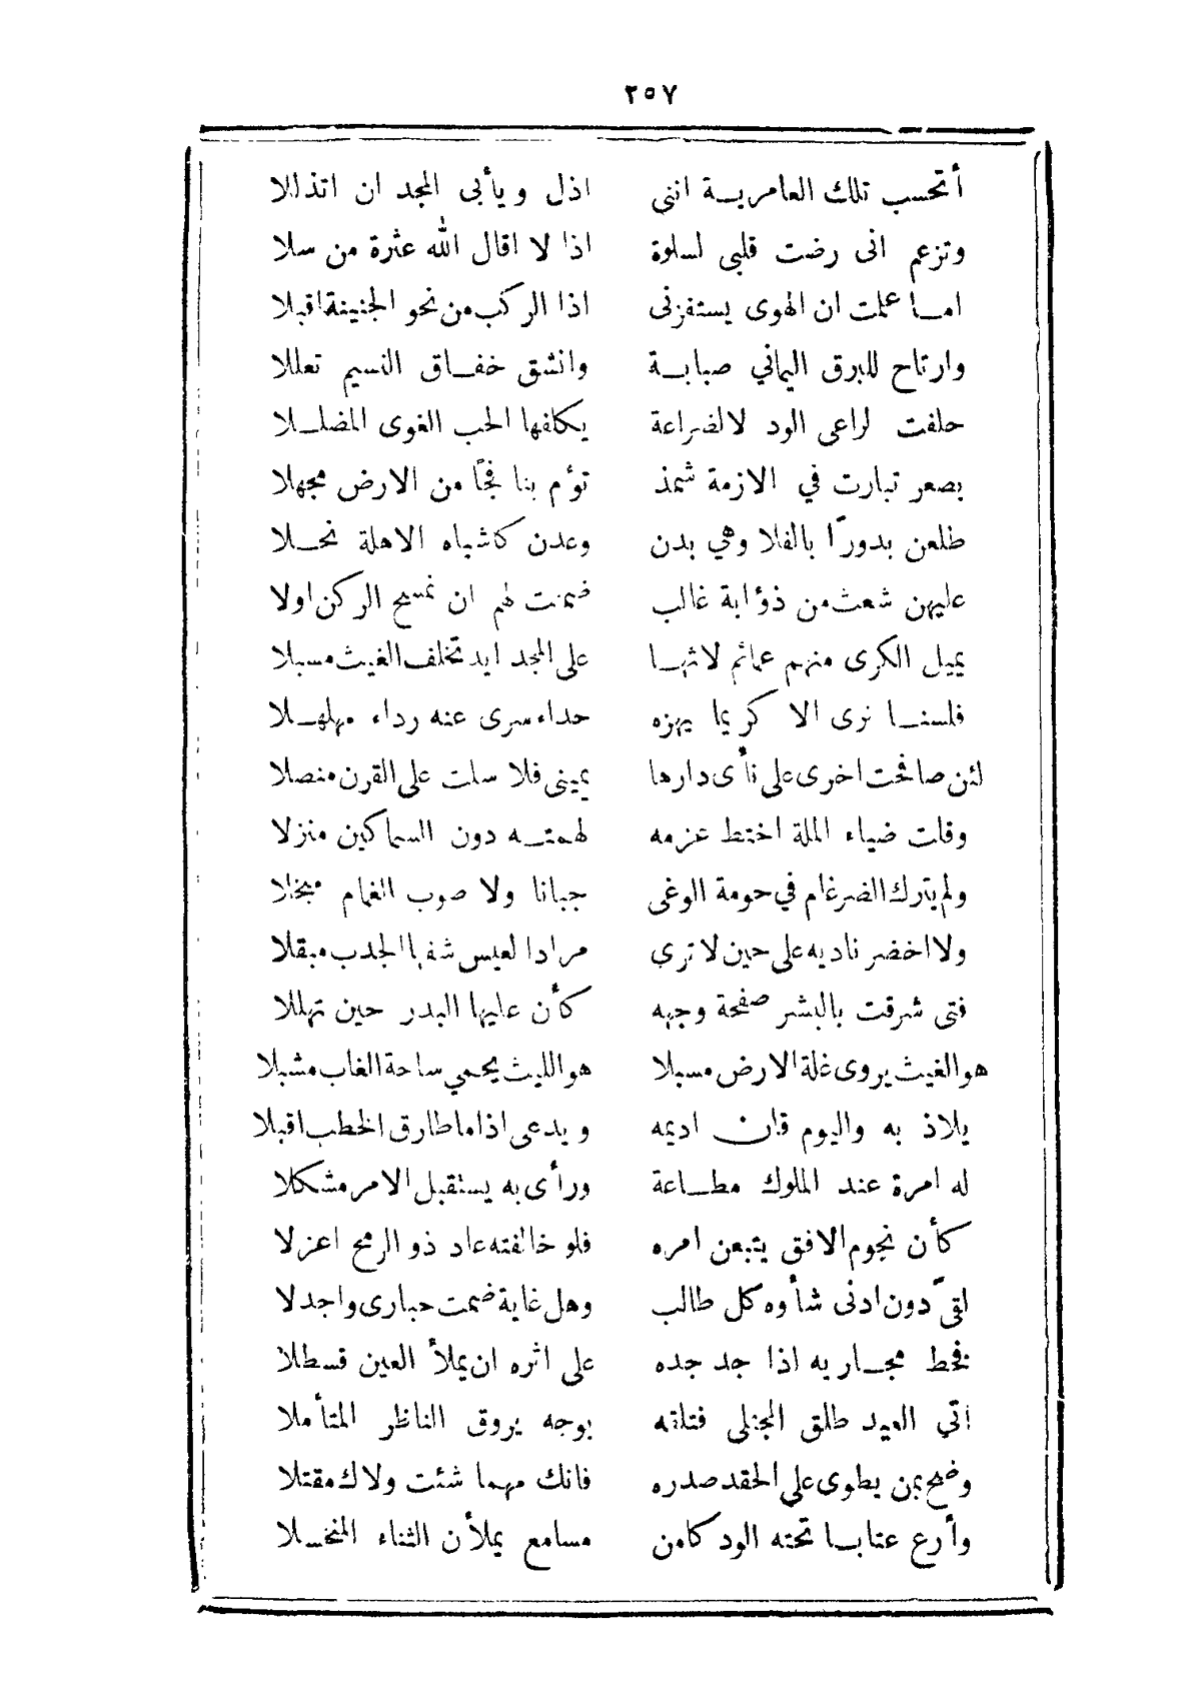 ٢٥٧
أتحسب تلك العامرية انني اذل ويأبى المجد ان اتذللا
وتزعم انى رضت قلبى لسلوة اذا لا اقال الله عثرة من سلا
اما علمت ان الهوى يستفزنى اذا الركب من نحو الجنينة اقبلا
وارتاح للبرق اليماني صبابة وانشق خفاق النسيم تعللا
حلفت لراعى الود لا لضراعة يكلفها الحب الغوى المضللا
بصعر تبارت في الازمة شمذ تؤم بنا فجًا من الارض مجهلا
طلعن بدورًا بالفلا وهي بدن وعدن كاشباه الاهلة نحلا
عليهن شعث من ذؤابة غالب ضمنت لهم ان نمسح الركن اولا
يميل الكرى منهم عمائم لاثها على المجد ايد تخلف الغيث مسبلا
فلسنا نرى الا كريما يهزه حداء سرى عنه رداء مهلهلا
لئن صافحت اخرى على نأى دارها يمينى فلا سلت على القرن منصلا
وقلت ضياء الملة اختط عزمه لهمته دون السماكين منزلا
ولم يترك الضرغام في حومة الوغى جبانا ولا صوب الغمام مبخلا
ولا اخضر ناديه على حين لا ترى مرادا لعيس شفها الجدب مبقلا
فتى شرقت بالبشر صفحة وجهه كأن عليها البدر حين تهللا
هو الغيث يروى غلة الارض مسبلا هو الليث يحمي ساحة الغاب مشبلا
يلاذ به واليوم قان اديمه ويدعى اذا ما طارق الخطب اقبلا
له امرة عند الملوك مطاعة ورأى به يستقبل الامر مشكلا
كأن نجوم الافق يتبعن امره فلو خالفته عاد ذو الرمح اعزلا
لقىّ دون ادنى شأوه كل طالب وهل غاية ضمت حبارى واجدلا
فخط مجاريه اذا جد جده على اثره ان يملأ العين قسطلا
اتي العيد طلق المجتلى فتلقه بوجه يروق الناظر المتأملا
وضح بمن يطوى على الحقد صدره فانك مهما شئت ولاك مقتلا
وأرع عتابا تحته الود كامن مسامع يملأن الثناء المنخلا